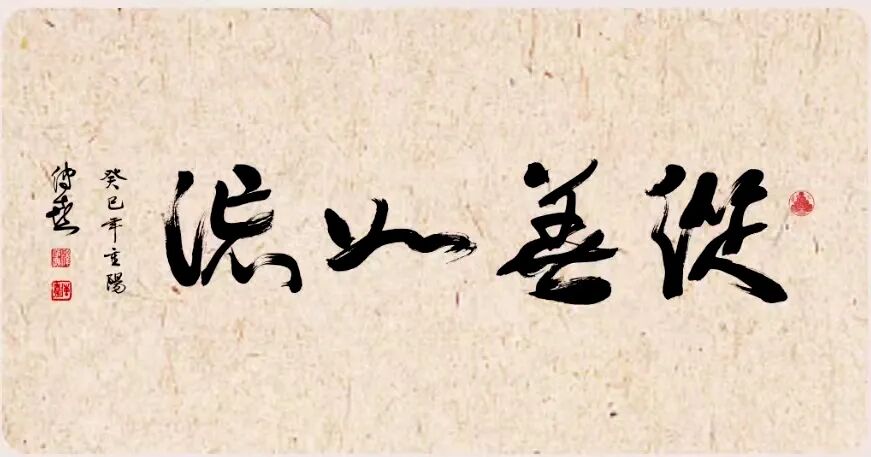 從善如流
癸巳年重陽